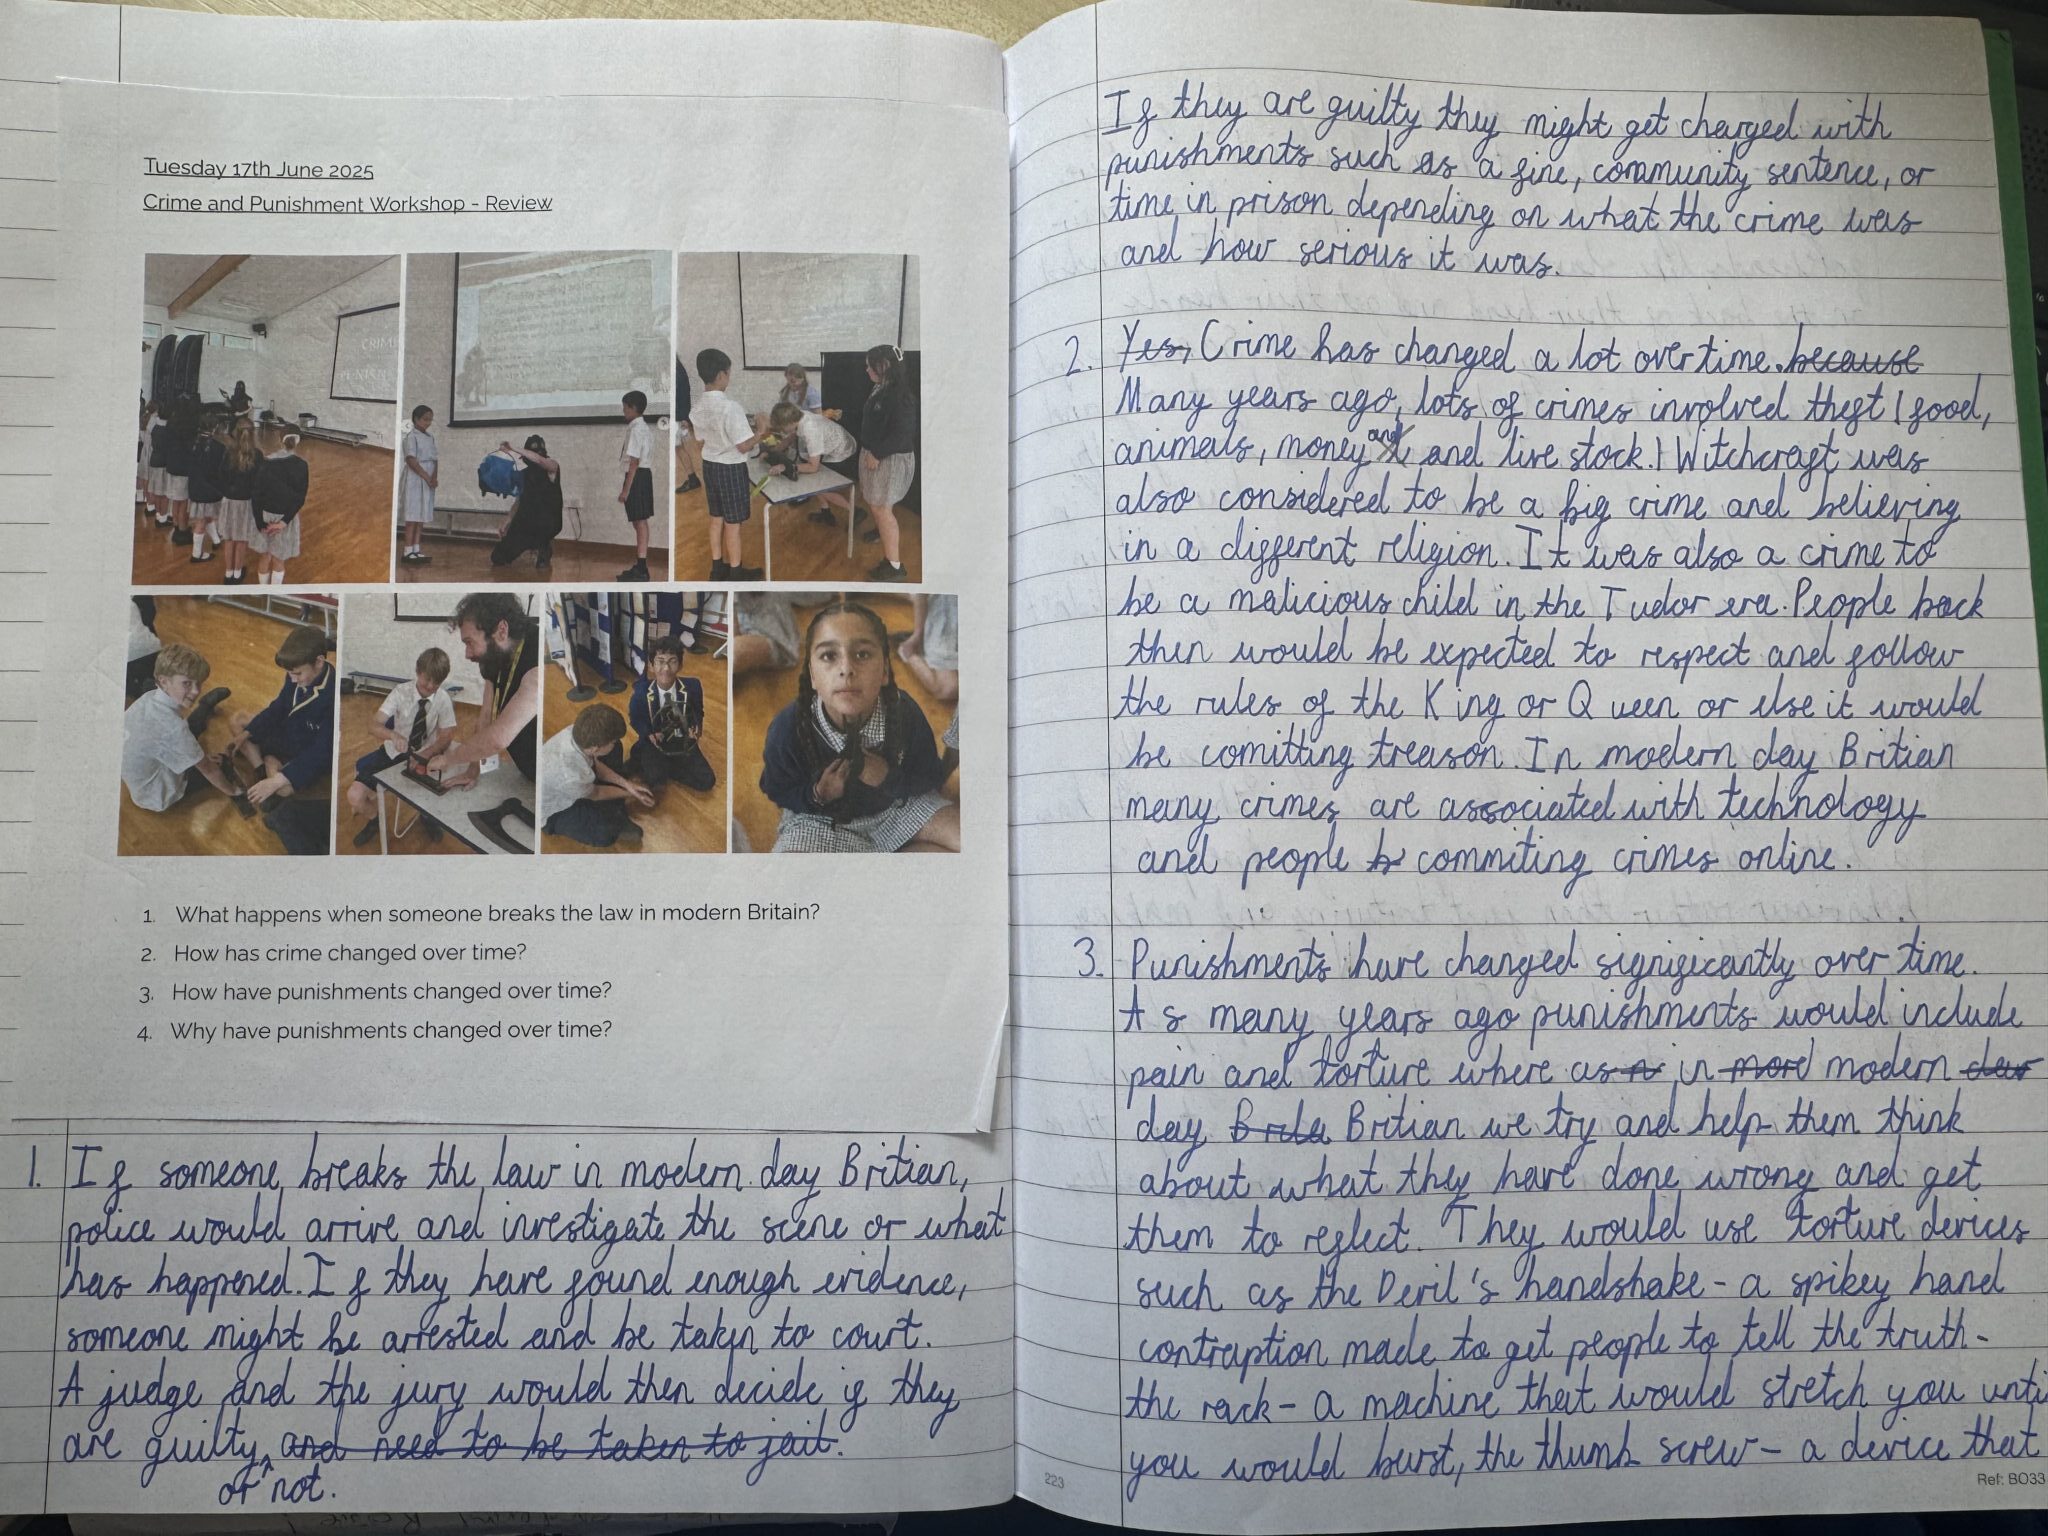 Tuesday 17th June 2025
Crime and Punishment Workshop - Review
1. What happens when someone breaks the law in modern Britain?
2. How has crime changed over time?
3. How have punishments changed over time?
4. Why have punishments changed over time?
1. If someone breaks the law in modern day Britian,
police would arrive and investigate the scene or what
has happened. If they have found enough evidence,
someone might be arrested and be taken to court.
A judge and the jury would then decide if they
are guilty ^ and need to be taken to jail.
or not.
If they are guilty they might get charged with
punishments such as a fine, community sentence, or
time in prison depending on what the crime was
and how serious it was.
2. Yes, Crime has changed a lot over time. because
Many years ago, lots of crimes involved theft (food,
animals, money and and live stock.) Witchcraft was
also considered to be a big crime and believing
in a different religion. It was also a crime to
be a malicious child in the Tudor era. People back
then would be expected to respect and follow
the rules of the King or Queen or else it would
be comitting treason. In modern day Britian
many crimes are associated with technology
and people b commiting crimes online.
3. Punishments have changed significantly over time.
As many years ago punishments would include
pain and torture where as in mord modern
day Britian we try and help them think
about what they have done wrong and get
them to reflect. They would use torture devices
such as the Devil's handshake - a spikey hand
contraption made to get people to tell the truth -
the rack - a machine that would stretch you unti
you would burst, the thumb screw - a device that
223
Ref: BO33